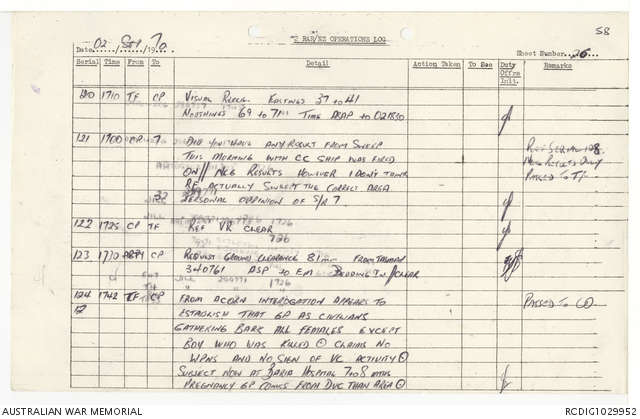 58
2 RAR/NZ OPERATIONS LOG
Date 02 / Sep / 1970
Sheet Number 26
Serial Time From To Detail Action Taken To See Duty Offrs Init. Remarks
120 1710 TF CP VISUAL RECCE. EASTINGS 37 to 41
NORTHINGS 69 to 71 TIME ASAP to 021830
121 1700 CP 7 DID YOU HAVE ANY RESULT FROM SWEEP
THIS MORNING WITH CC SHIP WAS FIRED
ON // NEG RESULTS HOWEVER I DON'T THINK
RF ACTUALLY SWEPT THE CORRECT AREA
PERSONAL OPPINION OF S/R 7
REF SERIAL 108
NEG RESULTS ONLY
PASSED TO TF
122 1725 CP TF REF VR CLEAR
123 1730 CP REQUEST GROUND CLEARANCE 81mm FROM
340761 ASP TO E.M BEDDING IN // CLEAR
124 1742 TF CP FROM ACORN INTEROGATION APPEARS TO
ESTABLISH THAT GP AS CIVILIANS
GATHERING BARK ALL FEMALES EXCEPT
BOY WHO WAS KILLED CLAIMS NO
WPNS AND NO SIGN OF VC ACTIVITY
SUBJECT NOW AT BARIA HOSPITAL 7 to 8 MTHS
PREGNANCY GP COMES FROM DUC THAN AREA
PASSED TO CO
AUSTRALIAN WAR MEMORIAL
RCDIG1029952